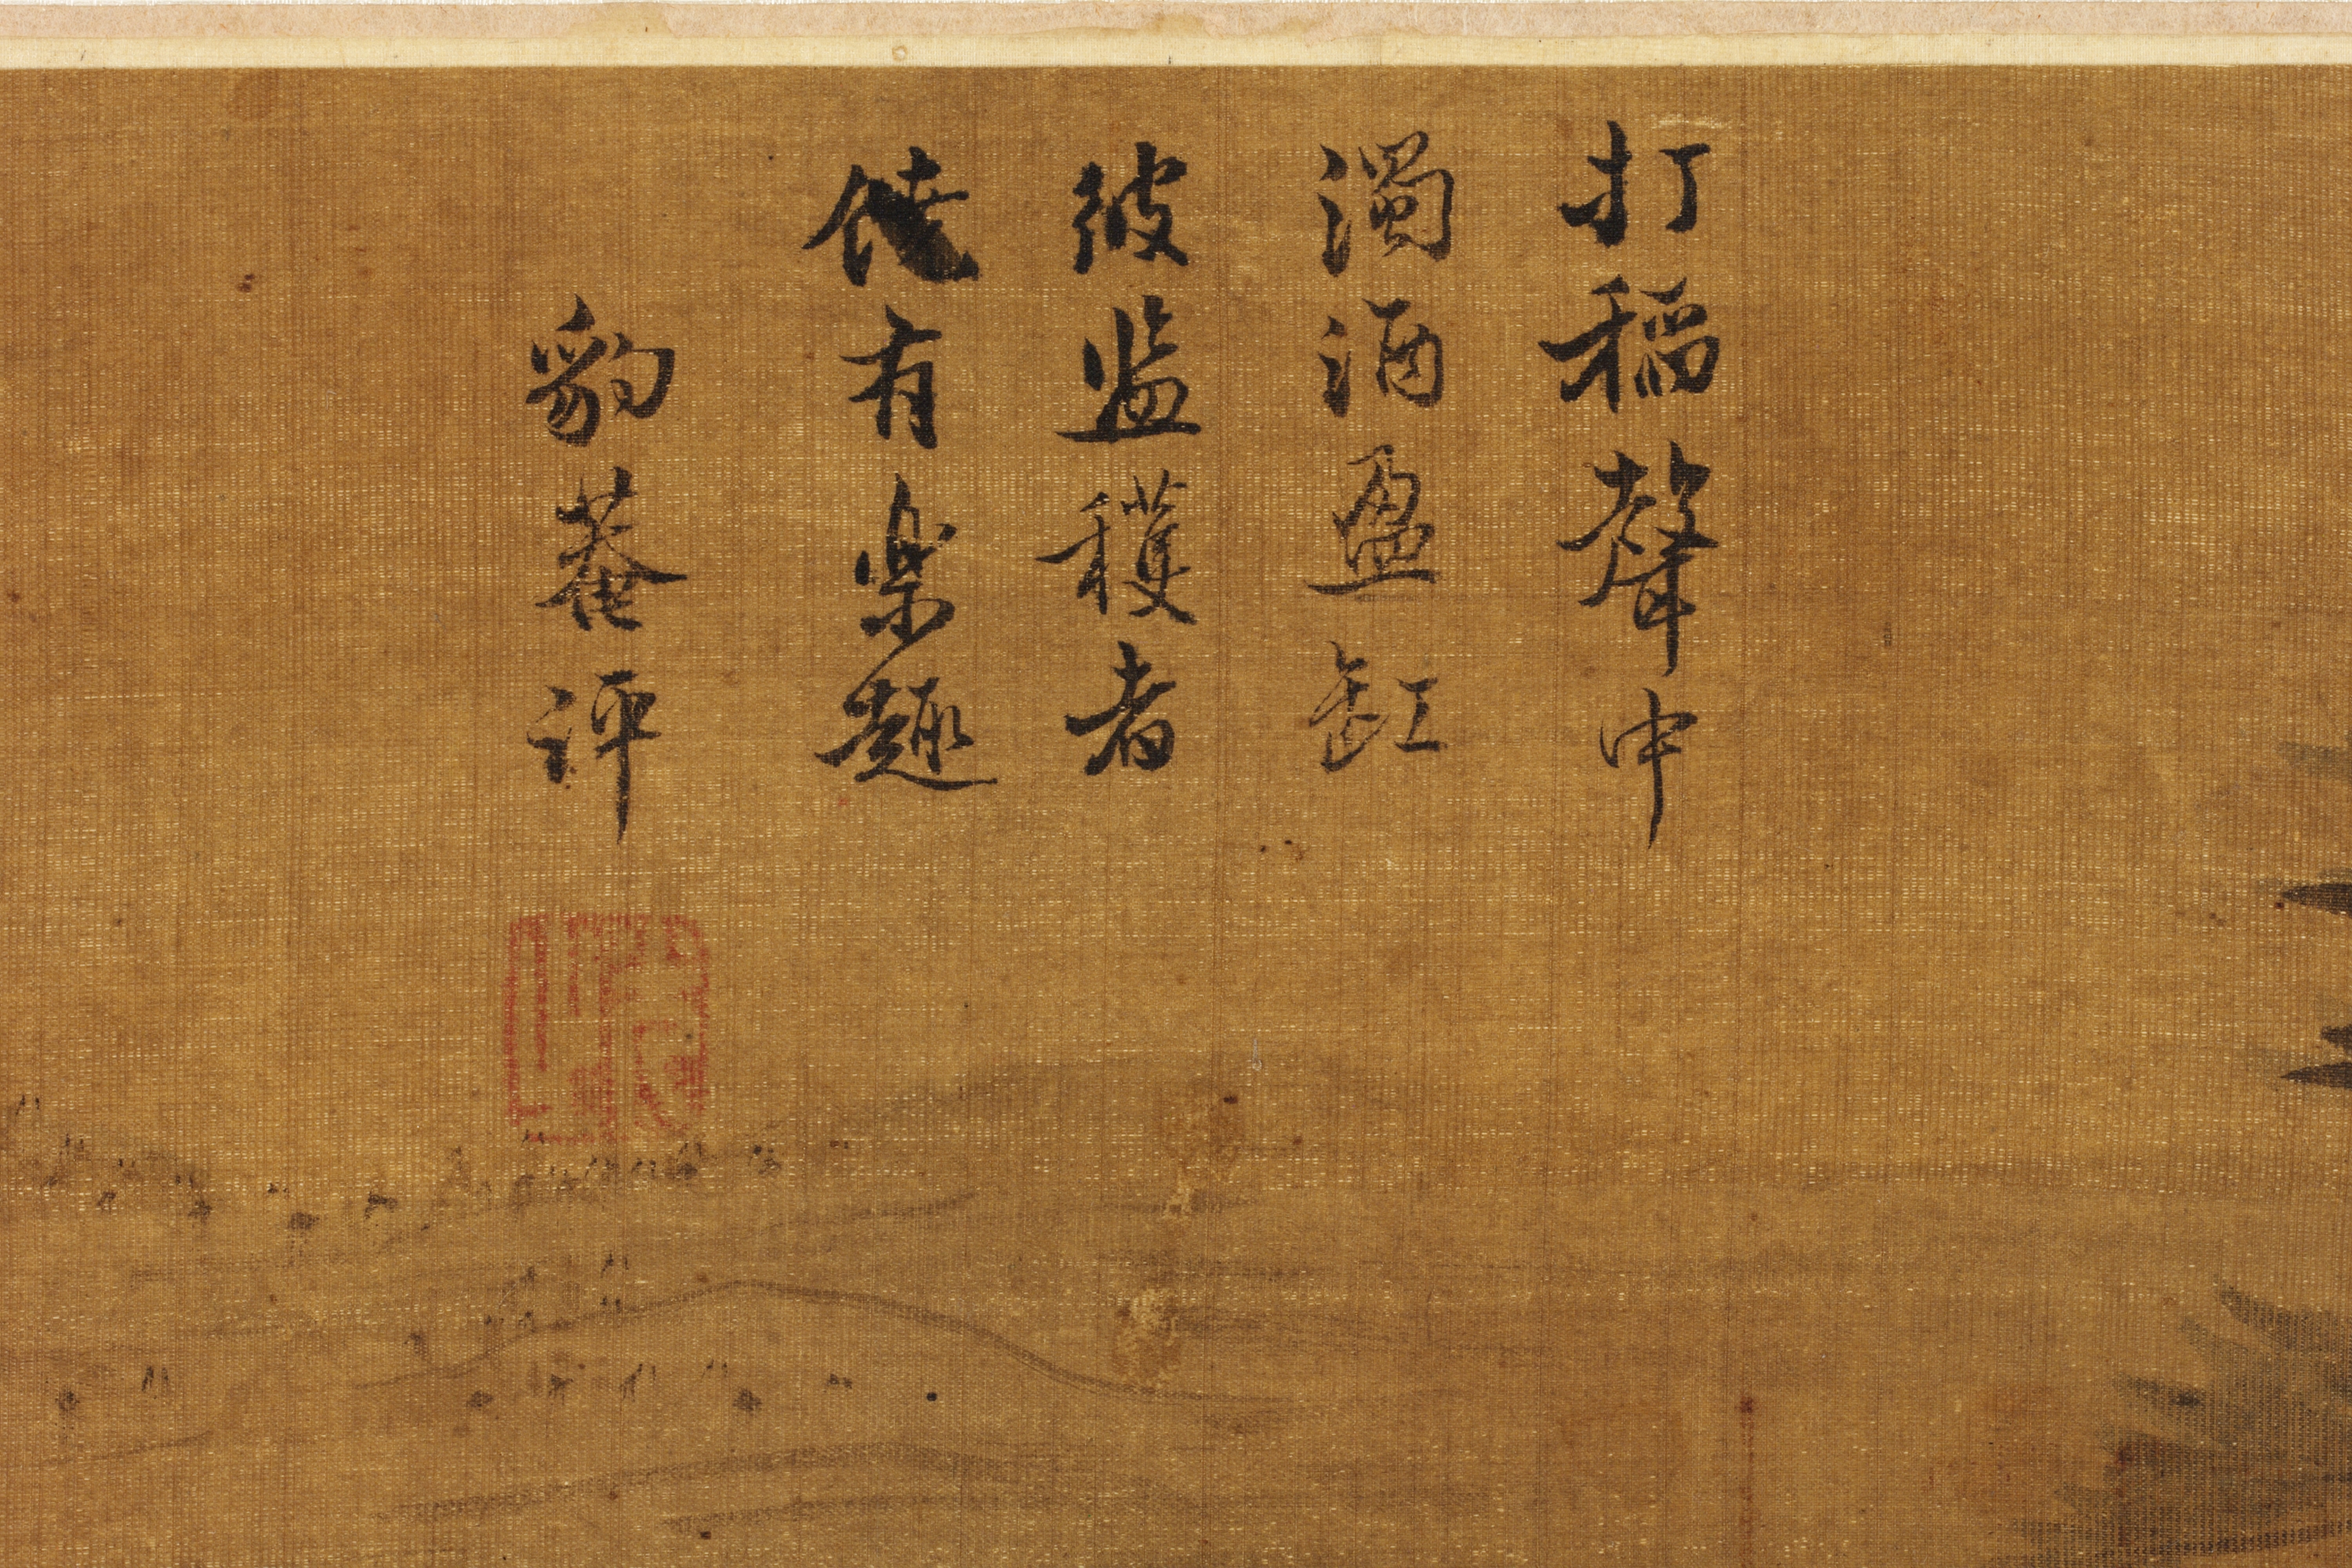 打稻聲中
濁酒盈缸
彼监穫者
饒有樂趣
豹菴評